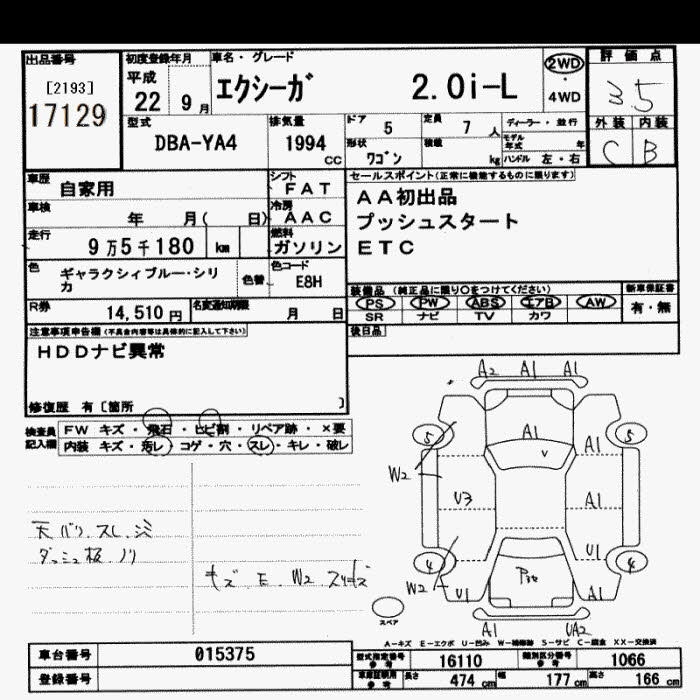 出品番号
[2193]
17129
初度登録年月
平成
22 9 月
車名・グレード
エクシーガ 2.0i-L
2WD
・
4WD
評価点
3.5
外装 内装
C B
型式
DBA-YA4
排気量
1994
CC
ドア 5
定員 7 人
ディーラー・並行
形状 ワゴン
積載 kg
モデル年式 年
ハンドル 左・右
車歴 自家用
シフト FAT
車検 年 月( 日)
冷房 AAC
走行 9万5千180 km
燃料 ガソリン
色 ギャラクシィブルー・シリカ
色替
色コード E8H
R券 14,510 円
名変通知期限 月 日
セールスポイント(正常に機能するものに限ります)
AA初出品
プッシュスタート
ETC
装備品 (純正品に限り○をつけてください)
新車保証書
PS PW ABS エアB AW
SR ナビ TV カワ
有・無
後日品
注意事項申告欄(不具合内容等は具体的に記入して下さい)
HDDナビ異常
修復歴 有〔箇所 〕
検査員記入欄
FW キズ・飛石・ヒビ割・リペア跡・×要
内装 キズ・汚レ・コゲ・穴・スレ・キレ・破レ
天バリ、スレ、シミ
ダッシュ板、ノリ
キズ E W2 スリキズ
A2 A1 A1
5 5
A1 A1
W2
U3 A1
U1
4 4
W2 U1 A1
A1 UA2
スペア
A-キズ E-エクボ U-凹み W-補修跡 S-サビ C-腐食 XX-交換済
車台番号 015375
登録番号
型式指定番号 参考 16110
類別区分番号 参考 1066
車庫証明用 参考 長さ 474 cm 幅 177 cm 高さ 166 cm